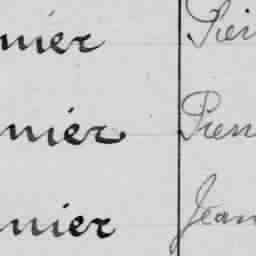 nier Pier
nier Pierr
nier Jean